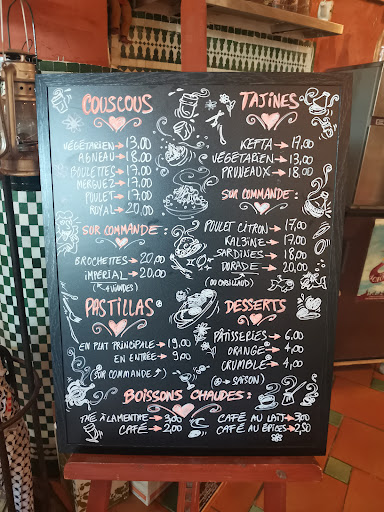 COUSCOUS
VÉGÉTARIEN → 13,00
AGNEAU → 18,00
BOULETTES → 17,00
MERGUEZ → 17,00
POULET → 17,00
ROYAL → 20,00
SUR COMMANDE :
BROCHETTES → 20,00
IMPERIAL → 20,00
(4 VIANDES)
PASTILLAS
EN PLAT PRINCIPALE → 19,00
EN ENTRÉE → 9,00
(SUR COMMANDE)
TAJINES
KEFTA → 17,00
VÉGÉTARIEN → 13,00
PRUNEAUX → 18,00
SUR COMMANDE :
POULET CITRON → 17,00
KALBINE → 17,00
SARDINES → 18,00
DORADE → 20,00
(OU CABILLAUD)
DESSERTS
PÂTISSERIES → 6,00
ORANGE → 4,00
CRUMBLE → 4,00
(→ SAISON)
BOISSONS CHAUDES :
THÉ À LA MENTHE → 3,00
CAFÉ → 2,00
CAFÉ AU LAIT → 3,00
CAFÉ AU ÉPICES → 2,50